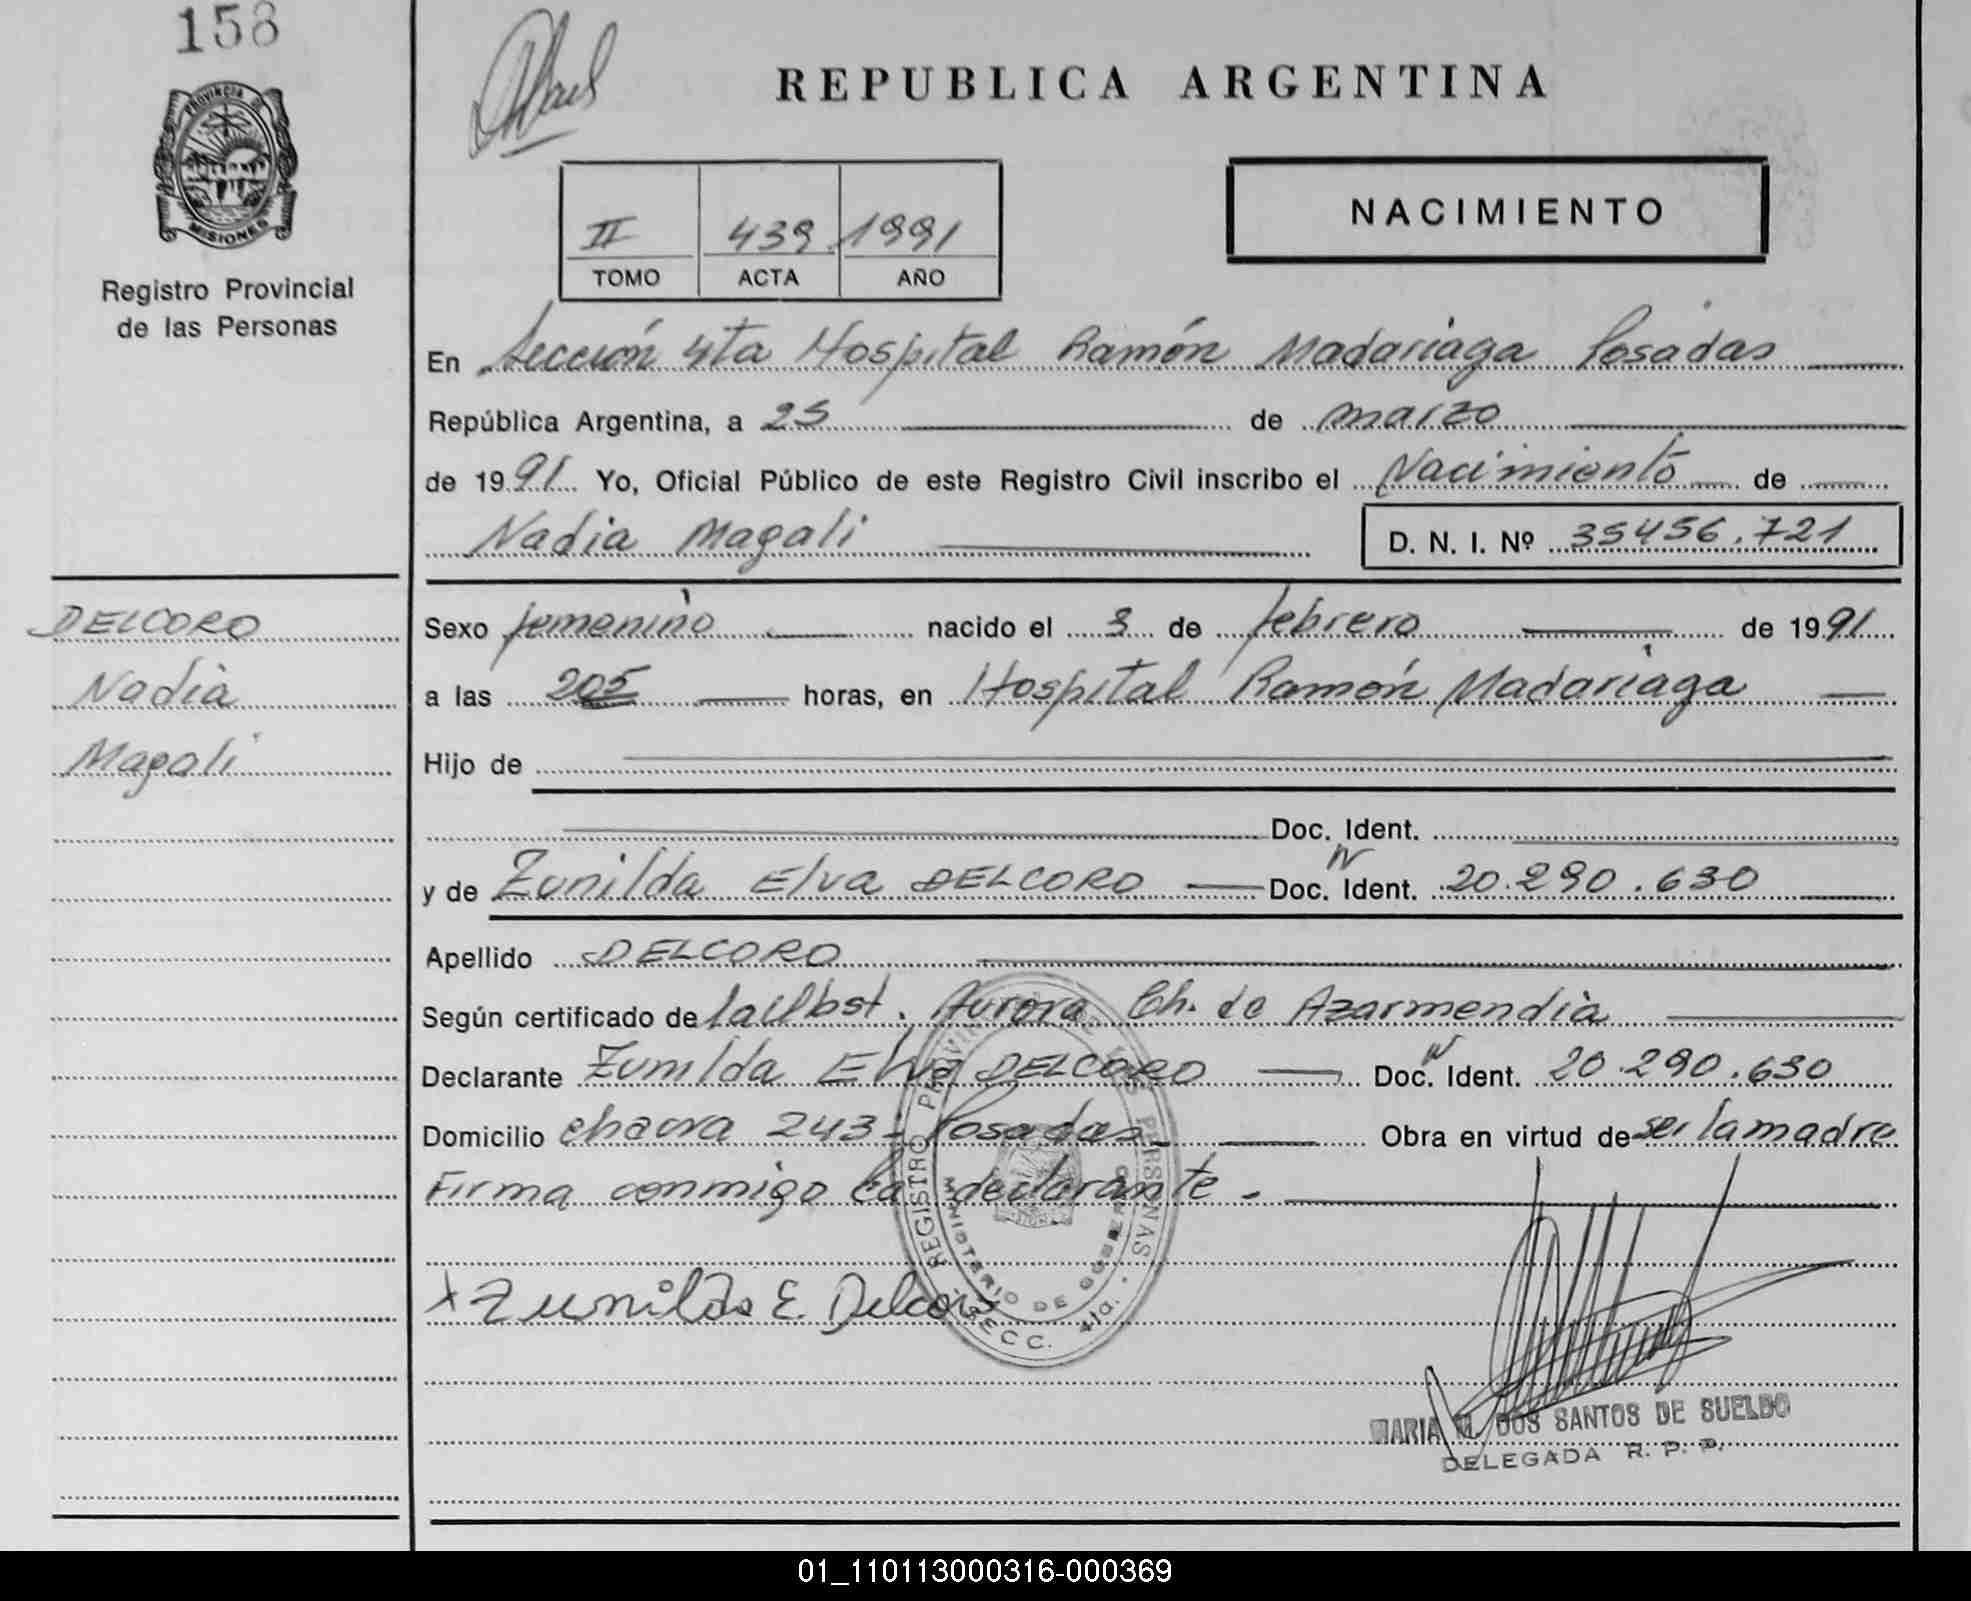 158
REPUBLICA ARGENTINA
PROVINCIA DE
MISIONES
Registro Provincial
de las Personas
II 439 1991
TOMO ACTA AÑO
NACIMIENTO
En Sección 4ta Hospital Ramón Madariaga Posadas
República Argentina, a 25 de marzo
de 1991 Yo, Oficial Público de este Registro Civil inscribo el Nacimiento de
Nadia Magali D. N. I. Nº 35456.721
DELCORO
Nadia
Magali
Sexo femenino nacido el 3 de febrero de 1991
a las 205 horas, en Hospital Ramón Madariaga
Hijo de
Doc. Ident.
y de Zunilda Elva DELCORO Doc. Ident. 20.290.630
Apellido DELCORO
Según certificado de la Obst. Aurora Ch. de Azarmendia
Declarante Zunilda Elva DELCORO Doc. Ident. 20.290.630
Domicilio chacra 243 - Posadas Obra en virtud de ser la madre
Firma conmigo la declarante.
REGISTRO PROVINCIAL DE LAS PERSONAS
MINISTERIO DE GOBIERNO
SECC. 4ta.
x Zunilda E. Delcoro
MARIA M. DOS SANTOS DE SUELDO
DELEGADA R. P. P.
01_110113000316-000369